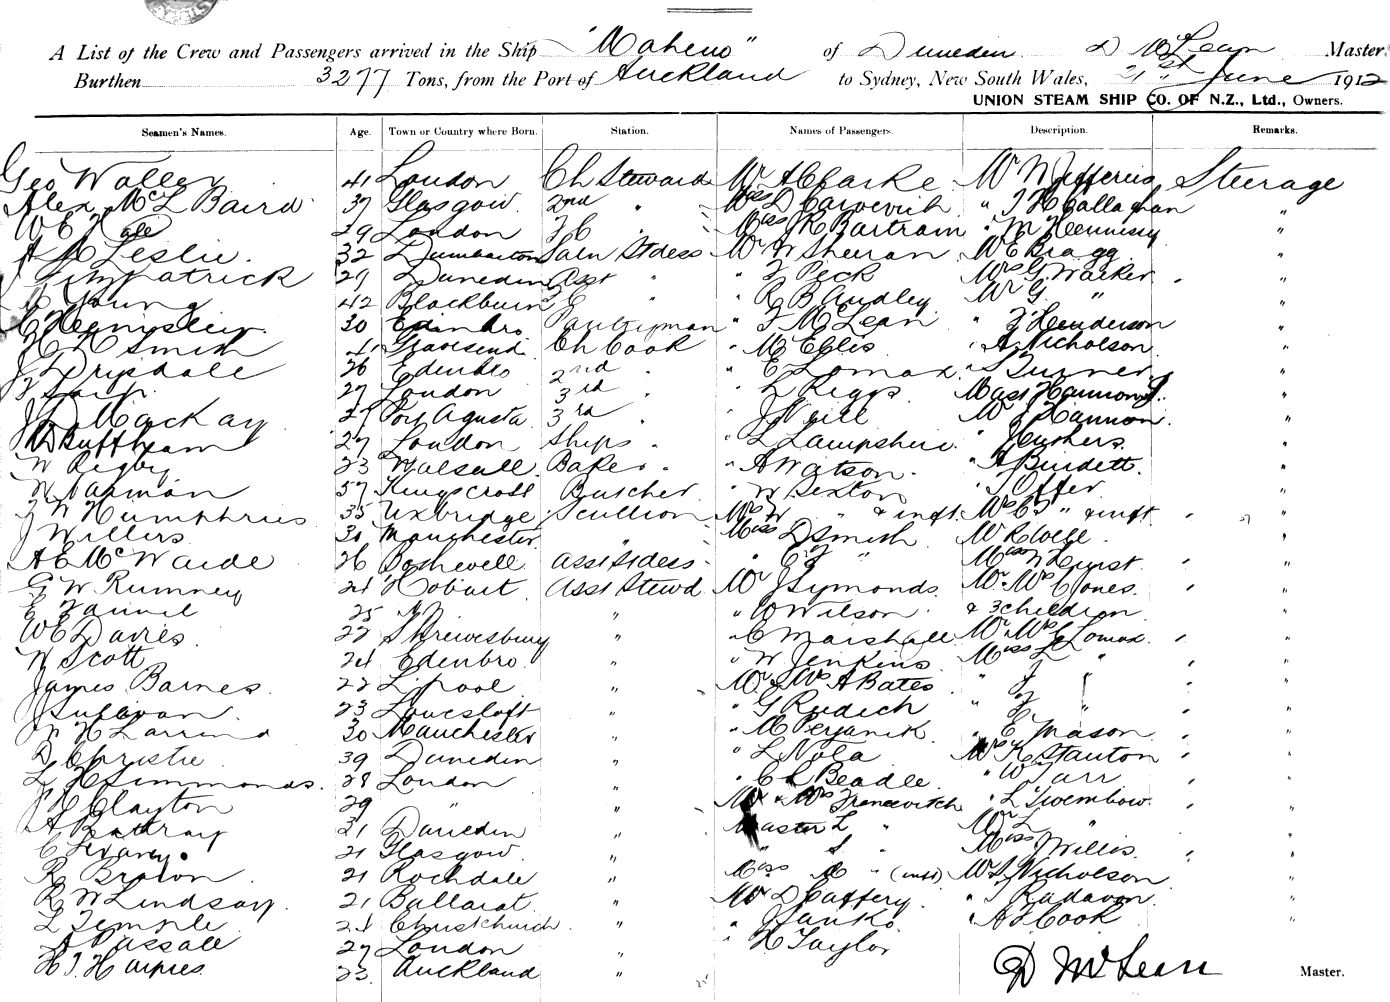 A List of the Crew and Passengers arrived in the Ship "Maheno" of Dunedin D McLean Master
Burthen 3277 Tons, from the Port of Auckland to Sydney, New South Wales, 21st June 1912
UNION STEAM SHIP CO. OF N.Z., Ltd., Owners.
Seamen's Names. Age. Town or Country where Born. Station. Names of Passengers. Description. Remarks.
Geo Waller 41 London Ch Steward Mr A Clarke Mr W Jefferies Steerage
Alex McL Baird 37 Glasgow 2nd " Miss D " J H Callaghan "
W E 29 London F C " Miss J R Bartram " M Hennessy "
A M Leslie. 32 Dumbarton Saln Stdess Mr W Sheeran W E Bragg "
J Fitzpatrick 29 Dunedin Asst " " F Peck Mrs G Walker "
Young 42 Blackburn " " R B Audley Mr G " "
C Hegnsley 30 Edinbro Pantryman " F McLean " F Henderson "
H H Smith 41 Gravesend Ch Cook " M Ellis " A Nicholson "
J Drysdale 26 Edenbro 2nd " " E Lomax " Turner "
27 London 3rd " " L Riggs Mast Hannon "
J D Mackay 29 Port Agusta 3rd " " J Neill Mr J Hannon "
W Buttham 27 London Ships " " L Lampshire "
W Rigby 23 Walsall Baker " A Watson " A Burdett "
W Jarman 57 Kings cross Butcher " W Sexton " J Offer "
F W Humphries 35 Uxbridge Scullion Mrs W " & inft Mrs " & inft "
J Willers 30 Manchester " Miss D Smith Mr R "
A E McWaide 26 Boshwell Asst Stdess " E F " Miss N Hurst "
G W Rumney 24 Hobart Asst Stewd Mr J Symonds Mr Mrs C Jones "
E 25 " " W Wilson & 3 children "
W E Davies 22 Shrewsbury " " C Marshall Mr Mrs C Lomax "
W Scott 24 Edenbro " " W Jenkins Miss L " "
James Barnes 22 L'pool " Mr & Mrs A Bates " J " "
J Sullivan 23 Lowestoft " " G Rudich " F " "
W H 30 Manchester " " M Perjanik " E Mason "
D Christie 39 Dunedin " " L Nola Mrs K Stanton "
L H Simmonds 28 London " " C L Beadle " W Tarr "
J C Clayton 29 " " Mr & Mrs Francevitch " L Twembow "
A 31 Dunedin " Master L " Mr L " "
C 21 Glasgow " " S " Miss Willis "
R Brown 21 Rochdale " Miss M " (inft) Mr S Nicholson "
R W Lindsay 21 Ballarat " Mr D Caffery " J Radavon "
L Temple 24 Christchurch " " J Janko " A J Cook "
A Passall 27 London " " H Taylor
H J Haines 23 Auckland " D McLean Master.